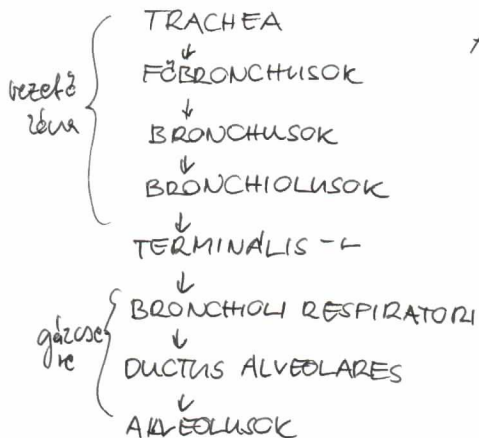 TRACHEA
↓
FŐBRONCHUSOK
↓
vezető
zóna
BRONCHUSOK
↓
BRONCHIOLUSOK
↓
TERMINÁLIS -L
↓
gázcse
re
BRONCHIOLI RESPIRATORI
↓
DUCTUS ALVEOLARES
↓
ALVEOLUSOK